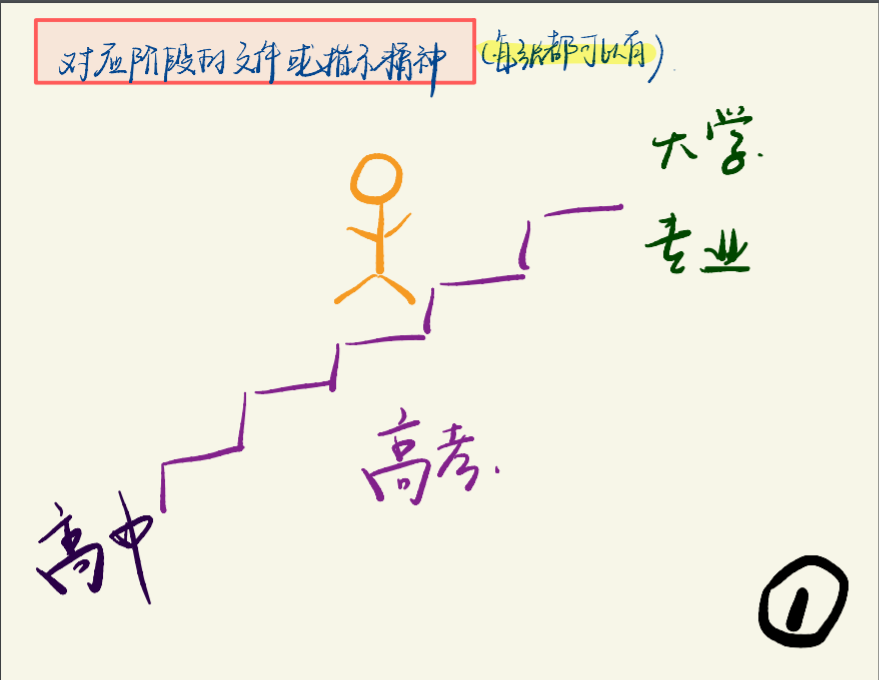 对应阶段的文件或指示精神(每张都可以有)
大学.
专业
高考.
高中
1